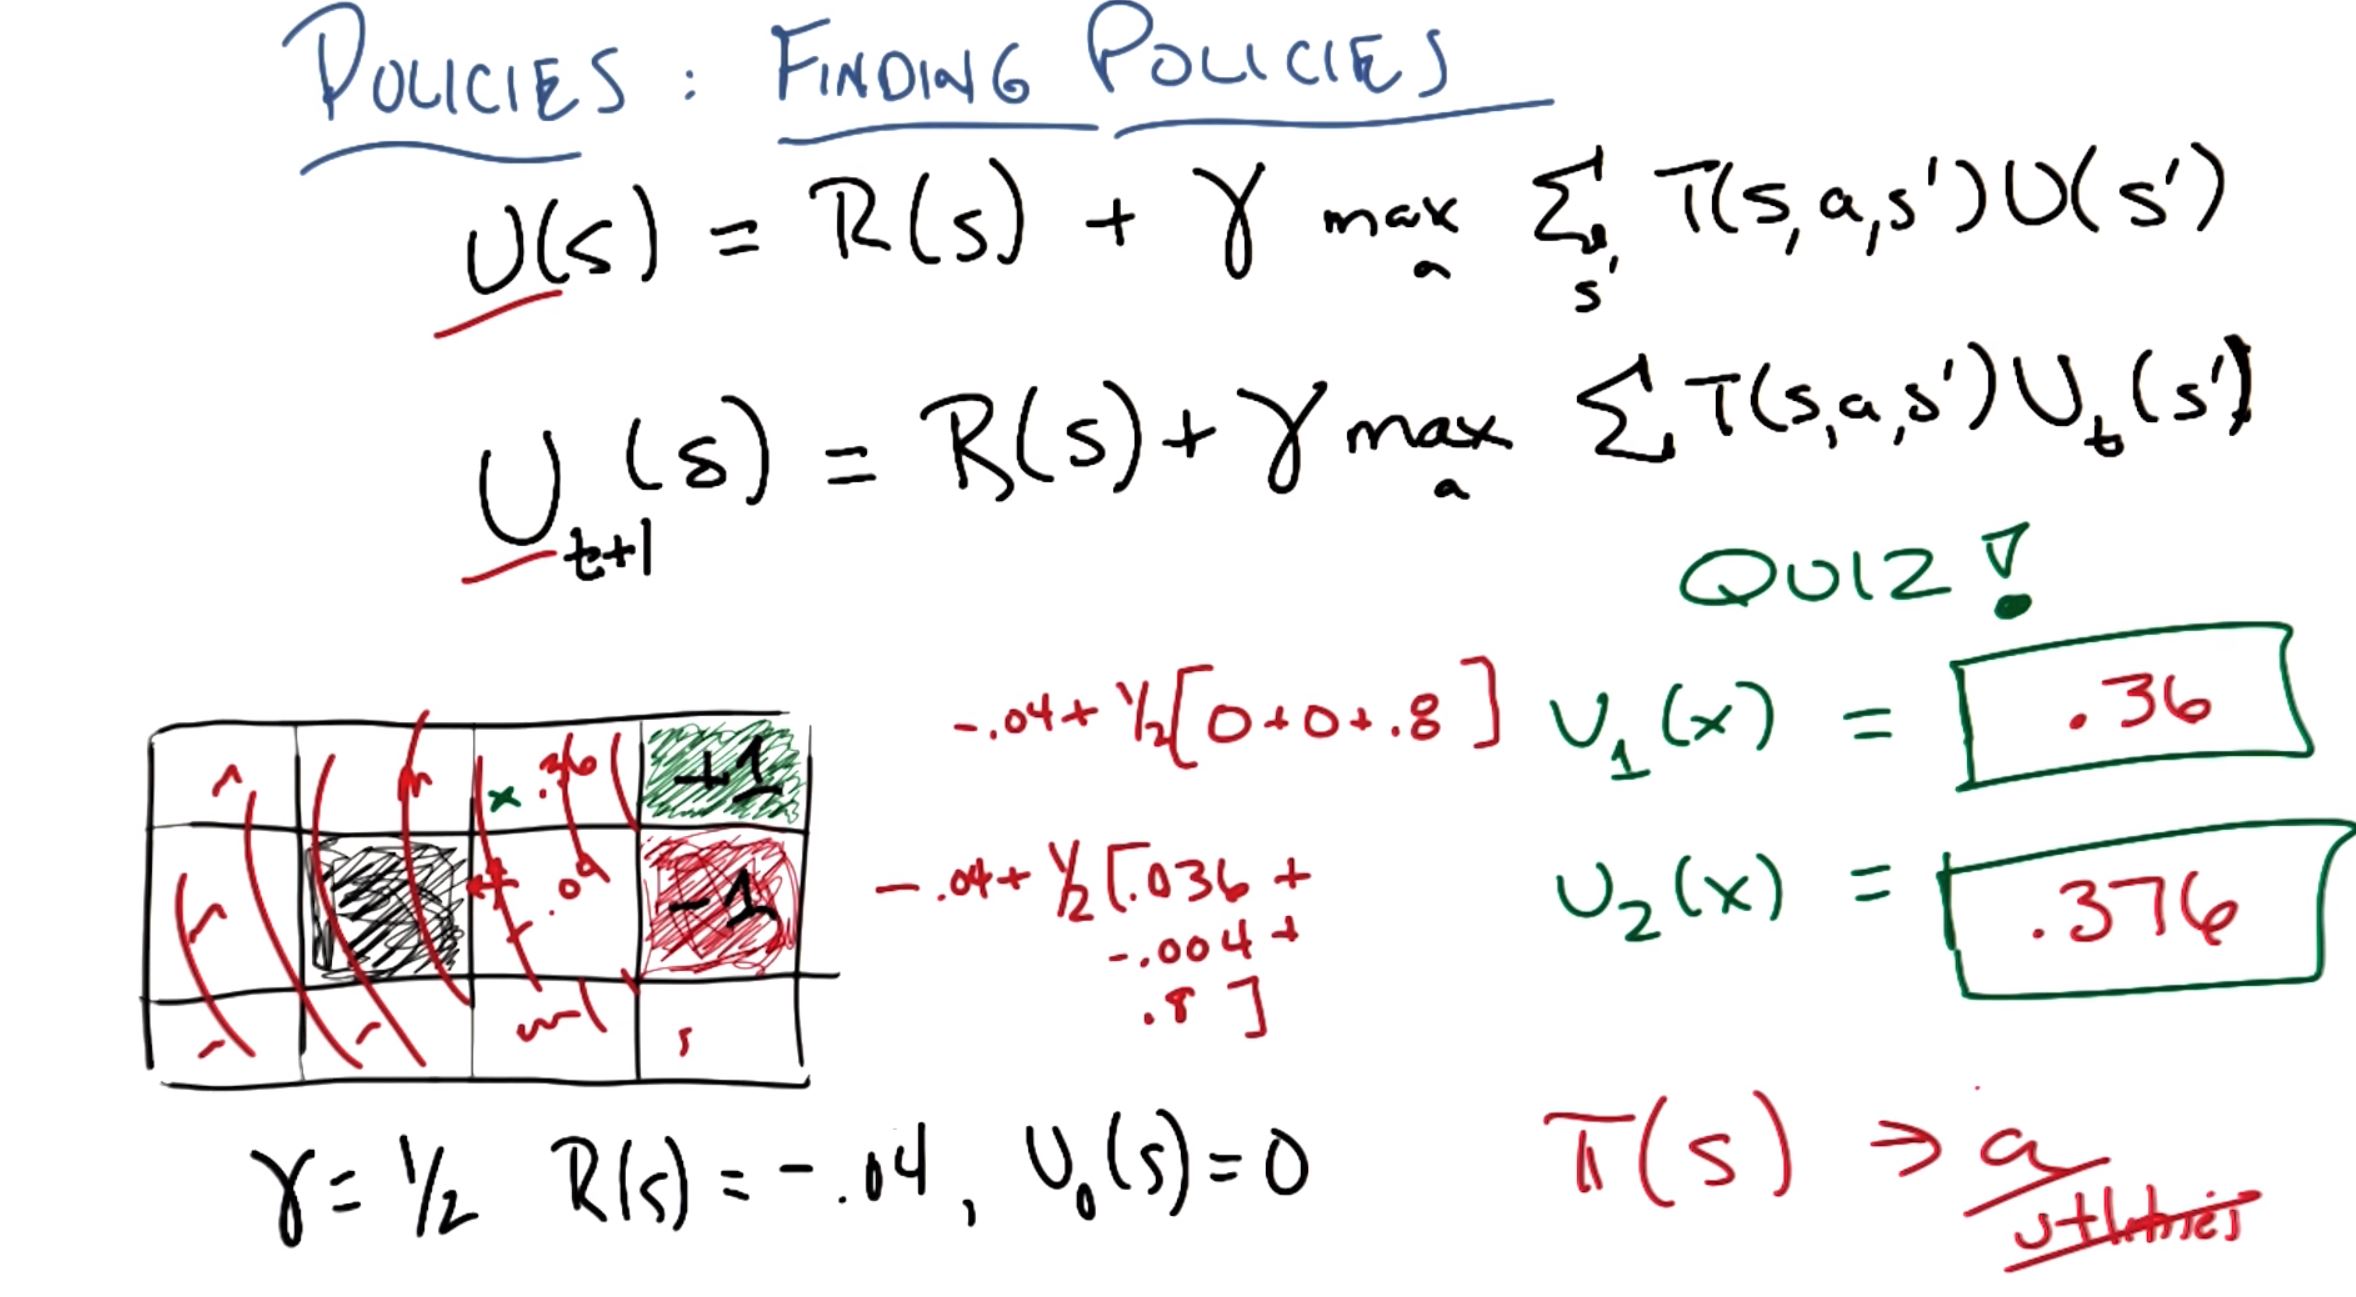 POLICIES: FINDING POLICIES
U(s) = R(s) + γ max_a Σ_s' T(s,a,s')U(s')
U_t+1(s) = R(s) + γ max_a Σ T(s,a,s')U_t(s')
QUIZ!
-.04+ ½[0+0+.8] U_1(x) = .36
x .36 +1
-.04+ ½[.036 + U_2(x) = .376
-.04 -1
-.004 +
.8]
γ = ½ R(s) = -.04, U_0(s) = 0
π(s) → a
utilities